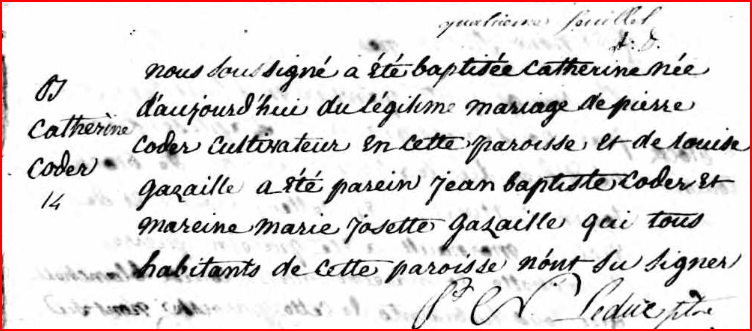 quatrieme feuillet
B
Catherine
Coder
14
nous soussigné a été baptisée Catherine née
d'aujourd'hui du légitime mariage de pierre
Coder Cultivateur En cette paroisse Et de Louise
Gazaille a été parein Jean baptiste Coder Et
mareine marie Josette Gazaille qui tous
habitants de cette paroisse n'ont su signer
Leduc ptre